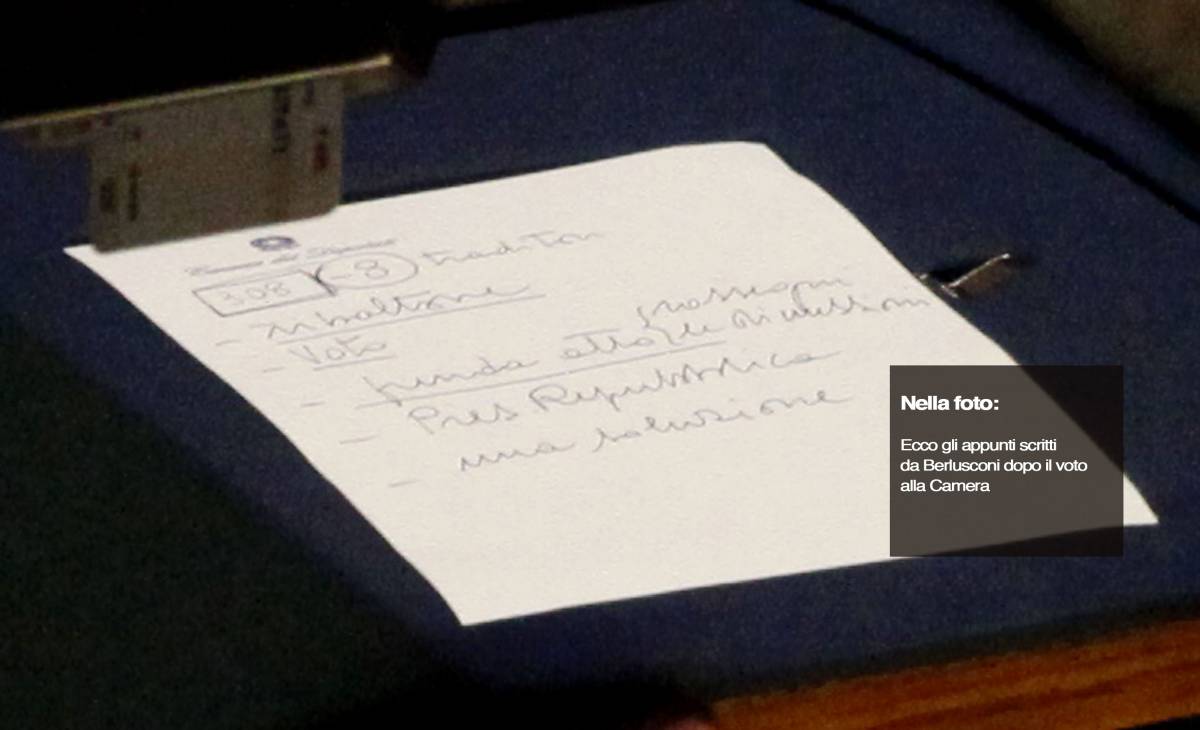 Camera dei Deputati
308 -8 traditori
- ribaltone
- Voto
prosegui
- prenda atto le dimissioni
- Pres Repubblica
- una soluzione
Nella foto:
Ecco gli appunti scritti
da Berlusconi dopo il voto
alla Camera